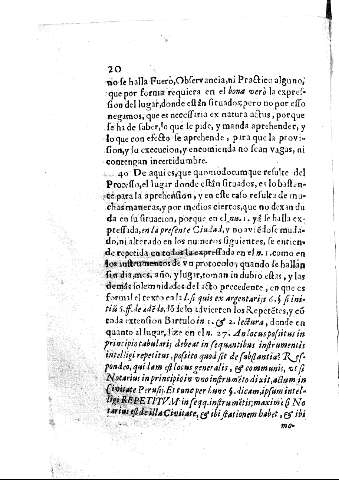 20
no se halla Fuero, Observancia, ni Practico alguno,
que por forma requiera en el bona verò la expres-
sion del lugar, donde estàn situados; pero no por esso
negamos, que es necessaria ex natura actus, porque
se ha de saber, lo que se pide, y manda aprehender, y
lo que con efecto se aprehende, para que la provi-
sion, y su execucion, y encomienda no sean vagas, ni
contengan incertidumbre.
40 De aqui es, que quomodocumque resulte del
Processo, el lugar donde estàn situados, es lo bastan-
te para la aprehension, y en este caso resulta de mu-
chas maneras, y por medios ciertos, que no dexan du
da en su situacion, porque en el nu. 1. yà se halla ex-
pressada, en la presente Ciudad, y no aviendose muda-
do, ni alterado en los numeros siguientes, se entien-
de repetida en todos la expressada en el n. 1. como en
los instrumentos de vn protocolo, quando se hallan
sin dia, mes, año, y lugar, toman in dubio estas, y las
demàs solemnidades del acto precedente, en que es
formal el texto en la l. si quis ex argentarijs 6. § si ini-
tiũ ff. de edẽdo, dõde lo advierten los Repetẽtes, y cõ
toda extension Bartulo in 1. & 2. lectura, donde en
quanto al lugar, dize en el n. 27. An locus positus in
principio tabularij, debeat in sequentibus instrumentis
intelligi repetitus, posito quod sit de substantia? Res-
pondeo, quidam est locus generalis, & communis, vt si
Notarius in principio in vno instrumẽto dixit, actum in
Civitate Perusij. Et tunc per hunc §. dicam, ipsum intel-
ligi REPETITVM in seqq. instrumẽtis; maximè si No
tarius est de illa Civitate, & ibi stationem habet, & ibi
mo-